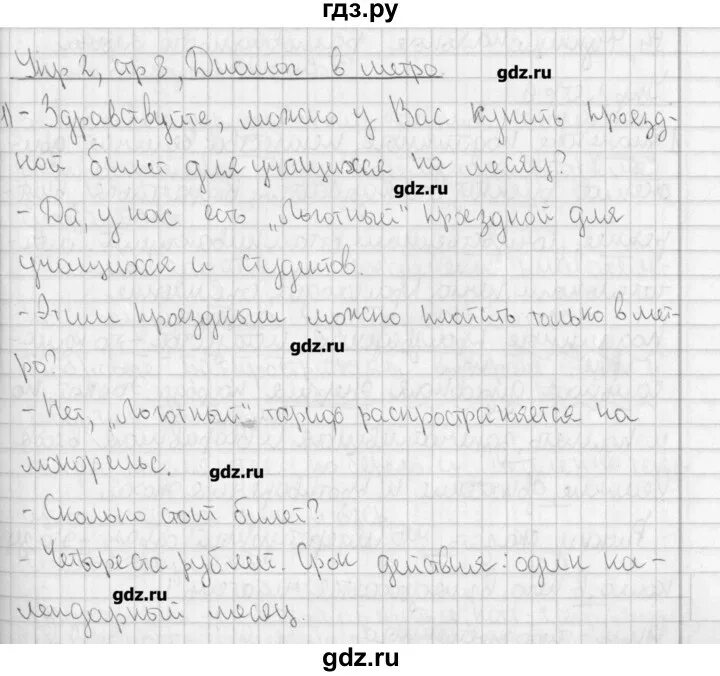 гдз.ру
Упр 2, стр 8, Диалог в метро
gdz.ru
1) - Здравствуйте, можно у Вас купить проезд-
ной билет для учащихся на месяц?
gdz.ru
- Да, у нас есть „Льготный" проездной для
учащихся и студентов.
- Этим проездным можно платить только в мет-
gdz.ru
ро?
- Нет, „Льготный" тариф распространяется на
монорельс.
gdz.ru
- Сколько стоит билет?
- Четыреста рублей. Срок действия: один ка-
gdz.ru
лендарный месяц.
gdz.ru